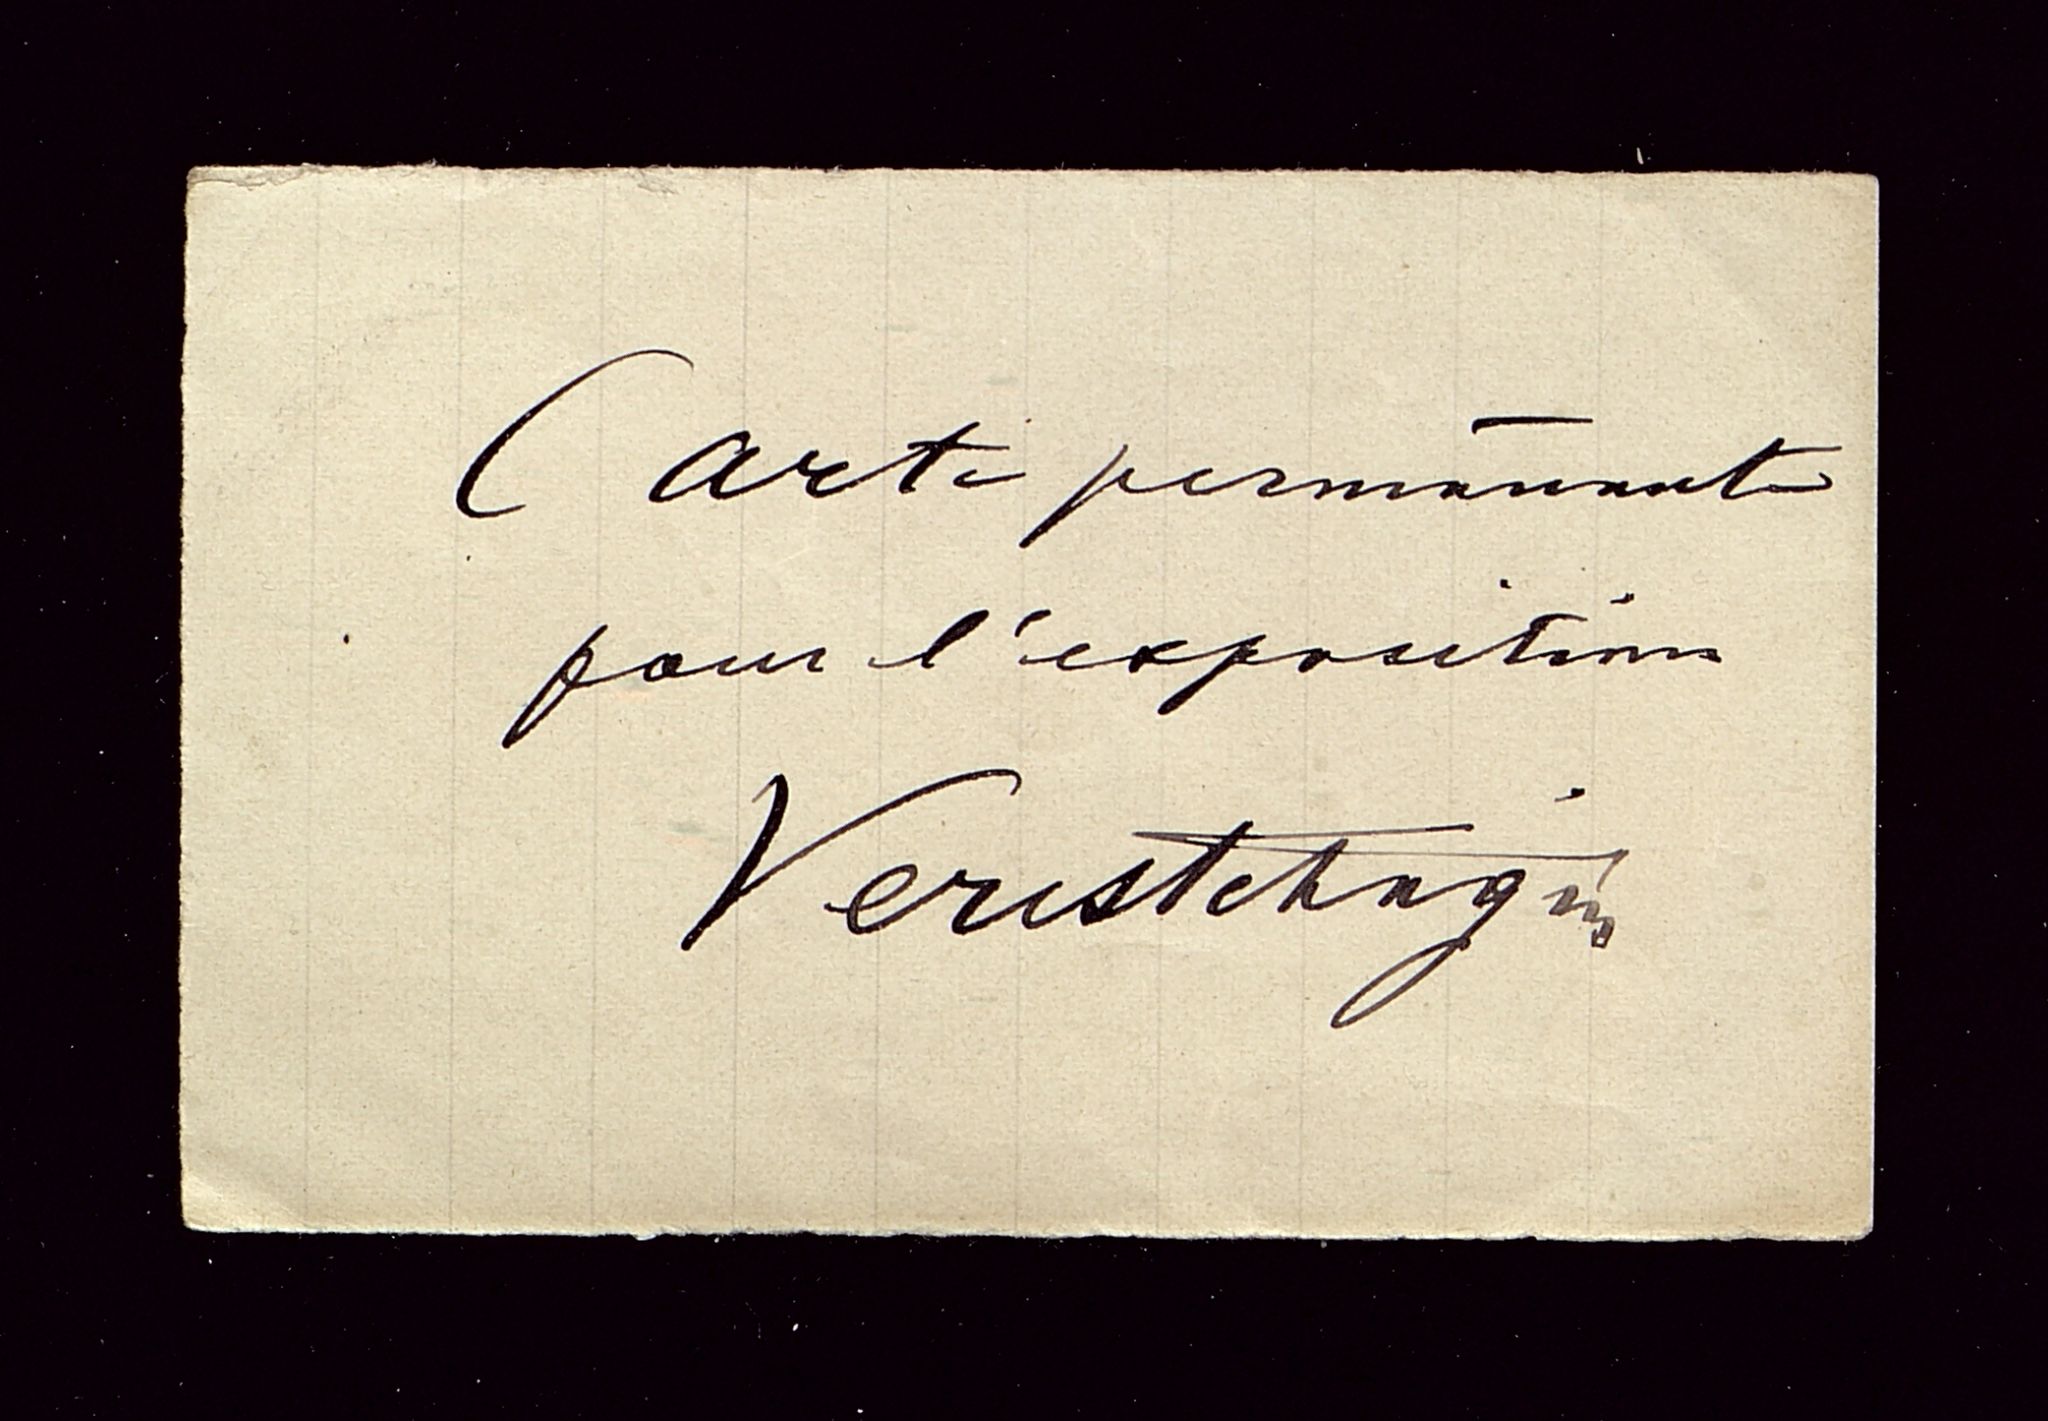 Carte permanante
pour l'exposition
Verestchagin